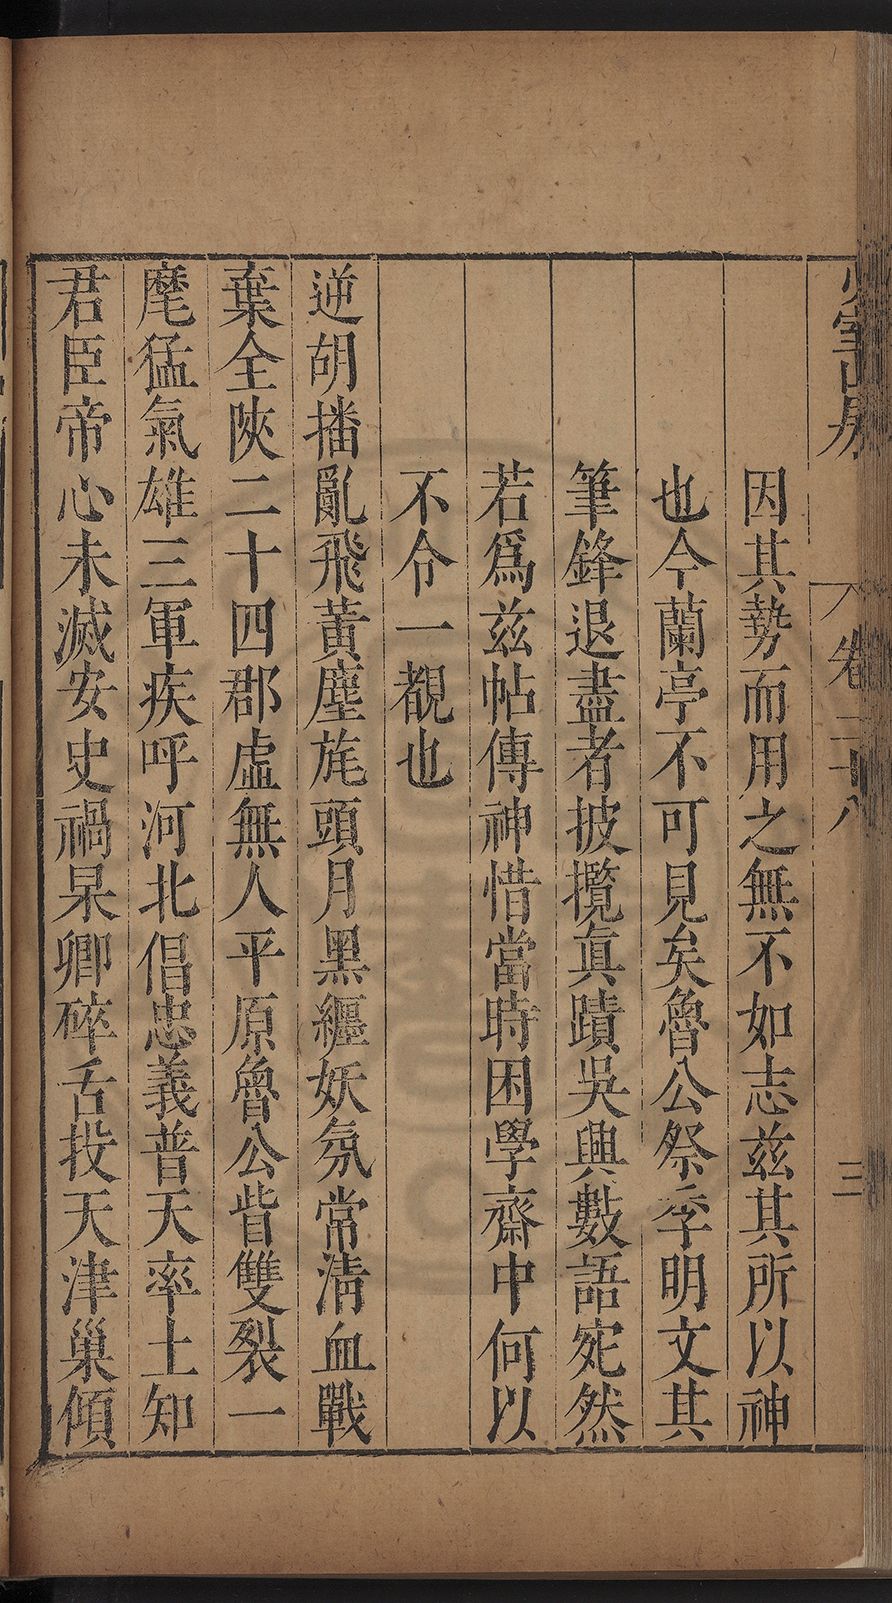 少室山房　卷二十八　三
因其勢而用之無不如志兹其所以神
也今蘭亭不可見矣魯公祭季明文其
筆鋒退盡者披攬真蹟吳興數語宛然
若爲兹帖傳神惜當時困學齋中何以
不令一覩也
逆胡播亂飛黃塵旄頭月黑纒妖氛常清血戰
棄全陝二十四郡虛無人平原魯公眥雙裂一
麾猛氣雄三軍疾呼河北倡忠義普天率土知
君臣帝心未滅安史禍杲卿碎舌投天津巢傾